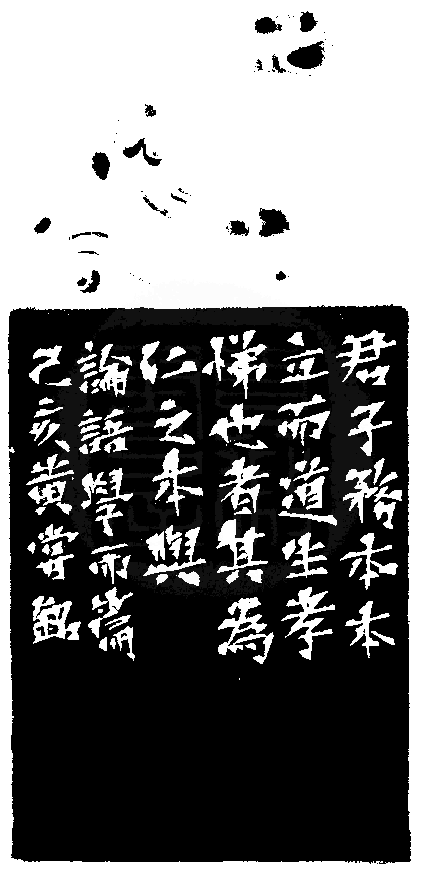 君子務本本
立而道生孝
悌也者其為
仁之本與
論語學而篇
己亥黃嘗銘